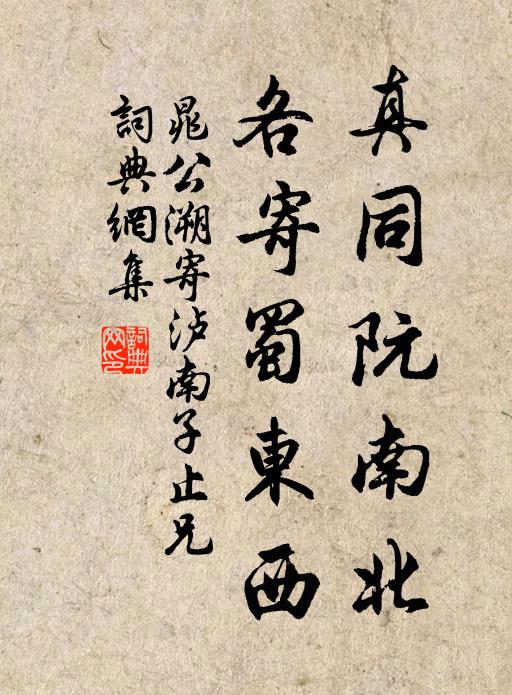 真同阮南北
各寄蜀東西
晁公溯寄泸南子止兄
詞典網集
詞典网印